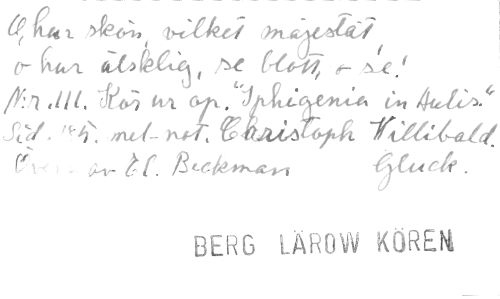 O, hur skön, vilket majestät
o hur älsklig, se blott, o se!
N:r. III. Kör ur op. "Iphigenia in Aulis."
Sid. met-not. Christoph Willibald.
av Beckman Gluck.
BERG LÄROW KÖREN